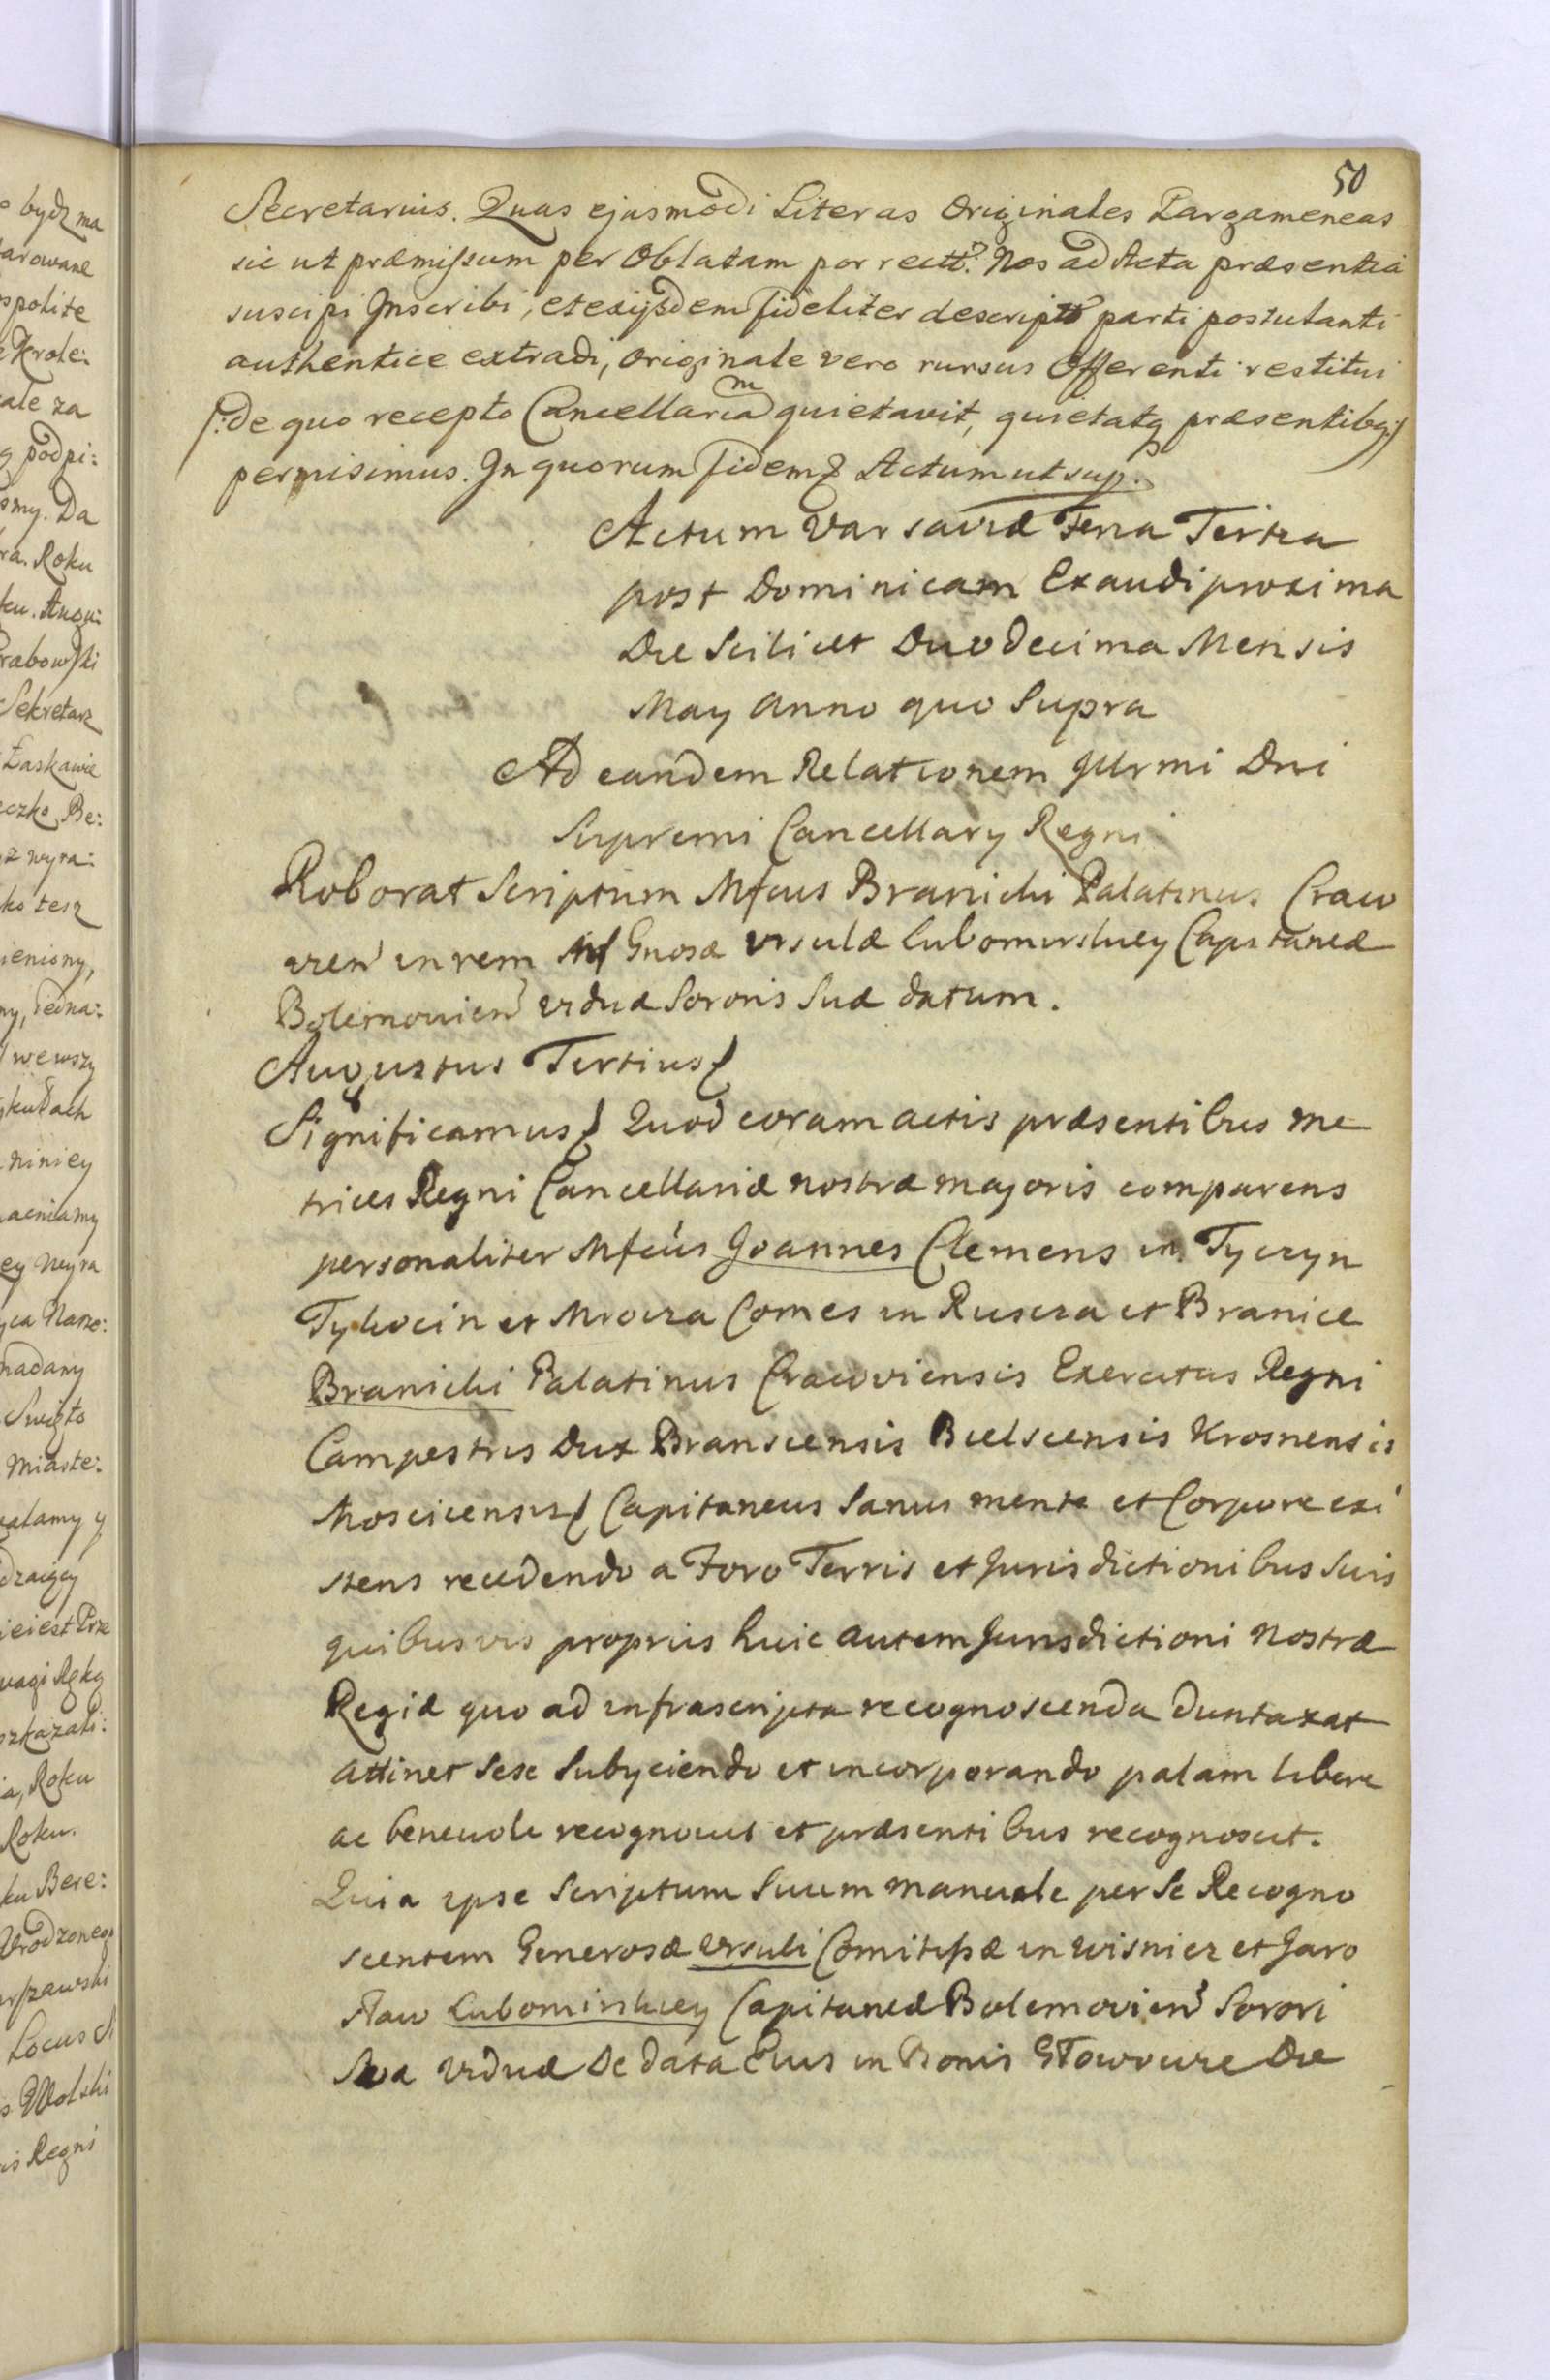 50
Secretarius. Quas ejusmodi Literas Originales Pargameneas
sic ut præmissum per Oblatam porrectt. Nos ad Acta præsentia
suscipi Inscribi, et exijsdem fideliter descripto parti postulanti
authentice extradi, originale vero rursus Offerenti restitui
/:de quo recepto Cancellariam quietavit, quietatq præsentibq:/
permisimus. In quorum fidem Actum ut sup.
Actum Varsaviæ Feria Tertia
post Dominicam Exaudi proxima
Die Scilicet Duodecima Mensis
May Anno quo Supra
Ad eandem Relationem Illrmi Dni
Supremi Cancellary Regni
Roborat Scriptum Mfcus Branicki Palatinus Craco
vien in rem Mf Gnosæ Ursulæ Lubomirskiey Capitaneæ
Bolemovien Viduæ Sororis Suæ datum.
Augustus Tertius
Significamus Quod coram actis præsentibus Me
trices Regni Cancellariæ nostræ majoris comparens
personaliter Mfcus Joannes Clemens in Tyczyn
Tykocin et Mrocza Comes in Ruscza et Branice
Branicki Palatinus Cracoviensis Exercitus Regni
Campestris Dux Branscensis Bielscensis Krosnensis
Moscicensis Capitaneus Sanus mente et Corpore exi
stens recedendo a Foro Terris et Jurisdictionibus Suis
quibusvis proprijs huic autem Jurisdictioni Nostræ
Regiæ quo ad infrascripta recognoscenda duntaxat
attinet sese Subyciendo et incorporando palam libere
ac benevole recognovit et præsentibus recognoscit.
Quia ipse Scriptum Suum manuale per Se Recogno
scentem Generosæ Ursuli Comitissæ in Wisnicz et Jaro
sław Lubomirskiey Capitaneæ Bolemovien Sorori
Sua Viduæ De data Eius in Bonis Głowcze Die